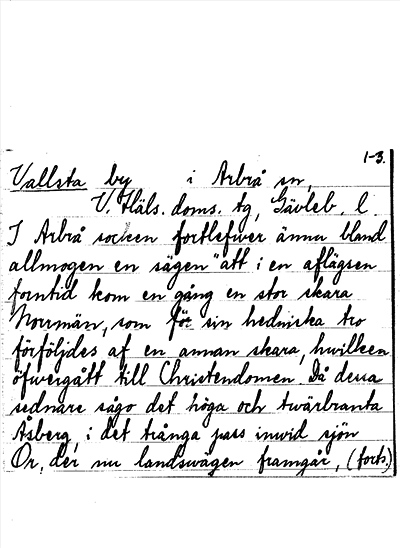 1-3.
Vallsta by i Arbrå sn,
V. Häls. doms. tg, Gävleb. l.
I Arbrå socken fortlefwer ännu bland
allmogen en sägen "att i en aflägsen
forntid kom en gång en stor skara
Norrmän, som för sin hedniska tro
förföljdes af en annan skara, hwilken
öfwergått till Christendomen. Då dessa
sednare sågo det höga och twärbranta
Åsberg, i det trånga pass inwid sjön
Or, der nu landswägen framgår, (forts.)